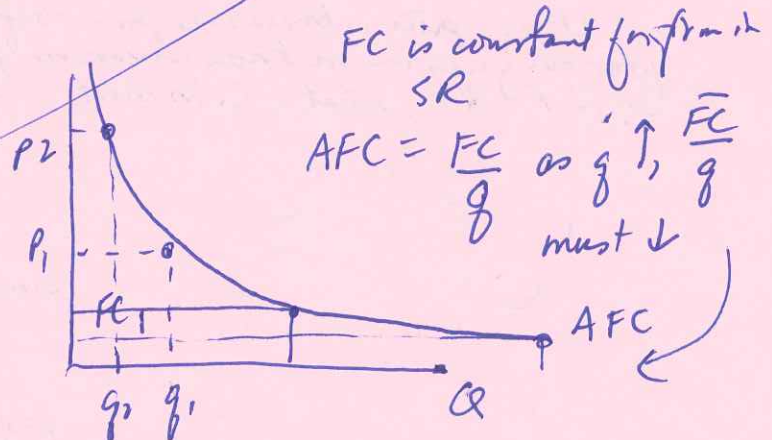 FC is constant for firm in
SR
AFC = FC/q as q ↑, F̅C̅/q
must ↓
P2
P1
FC1
AFC
q2 q1 Q